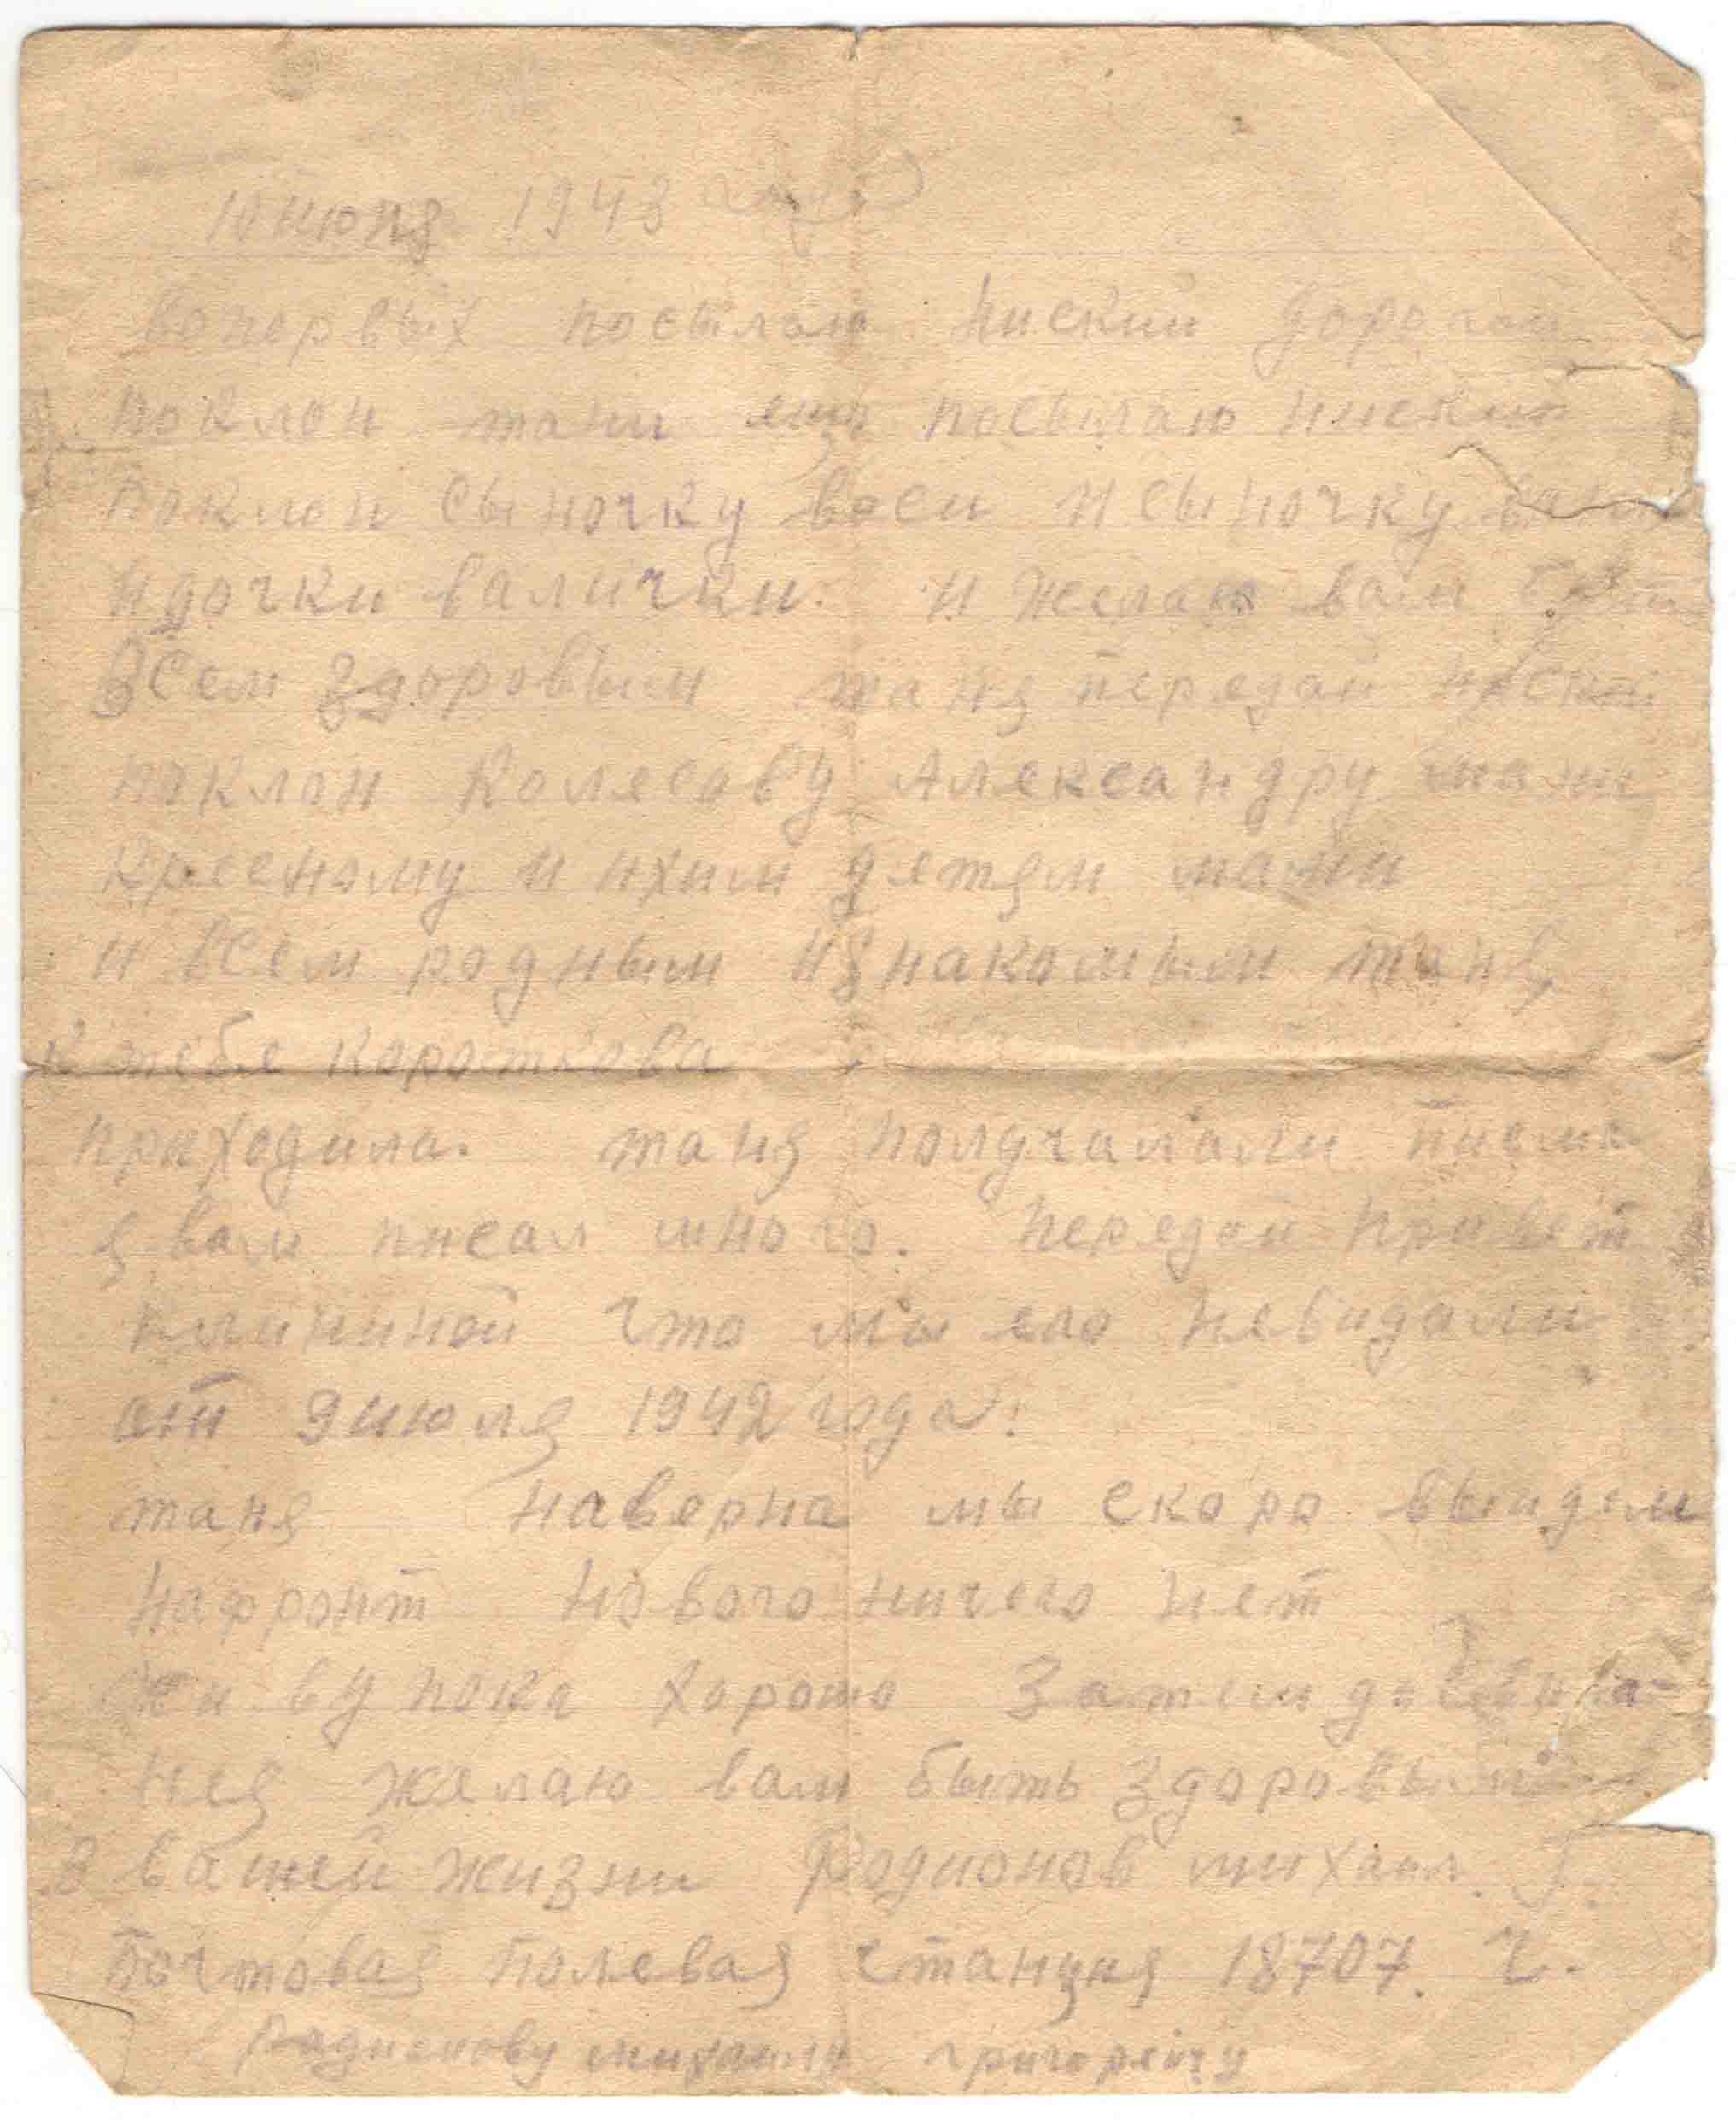 10 июня 1943 года
вопервых посылаю ниский дорогой
поклон тани ищо посылаю ниский
поклон сыночку васи и сыночку
и дочки валички. и желаю вам быть
Всем здоровым таня передай ниский
поклон Колесову Александру тани
Кресному и ихим детям тани
и всем родным и знакомым таня
к тебе короткова
приходила. таня получалали писма
я вам писал много. передай привет
клининой что мы его невидали
от 9 июля 1942 года.
таня наверна мы скоро выидем
нафронт нового ничего нет
живу пока хорошо Затем досвида-
ния желаю вам быть здоровыми
в вашей жизни Родионов михаил. Г.
почтовая полевая станция 18707. Г.
Радионову михаилу григоревичу